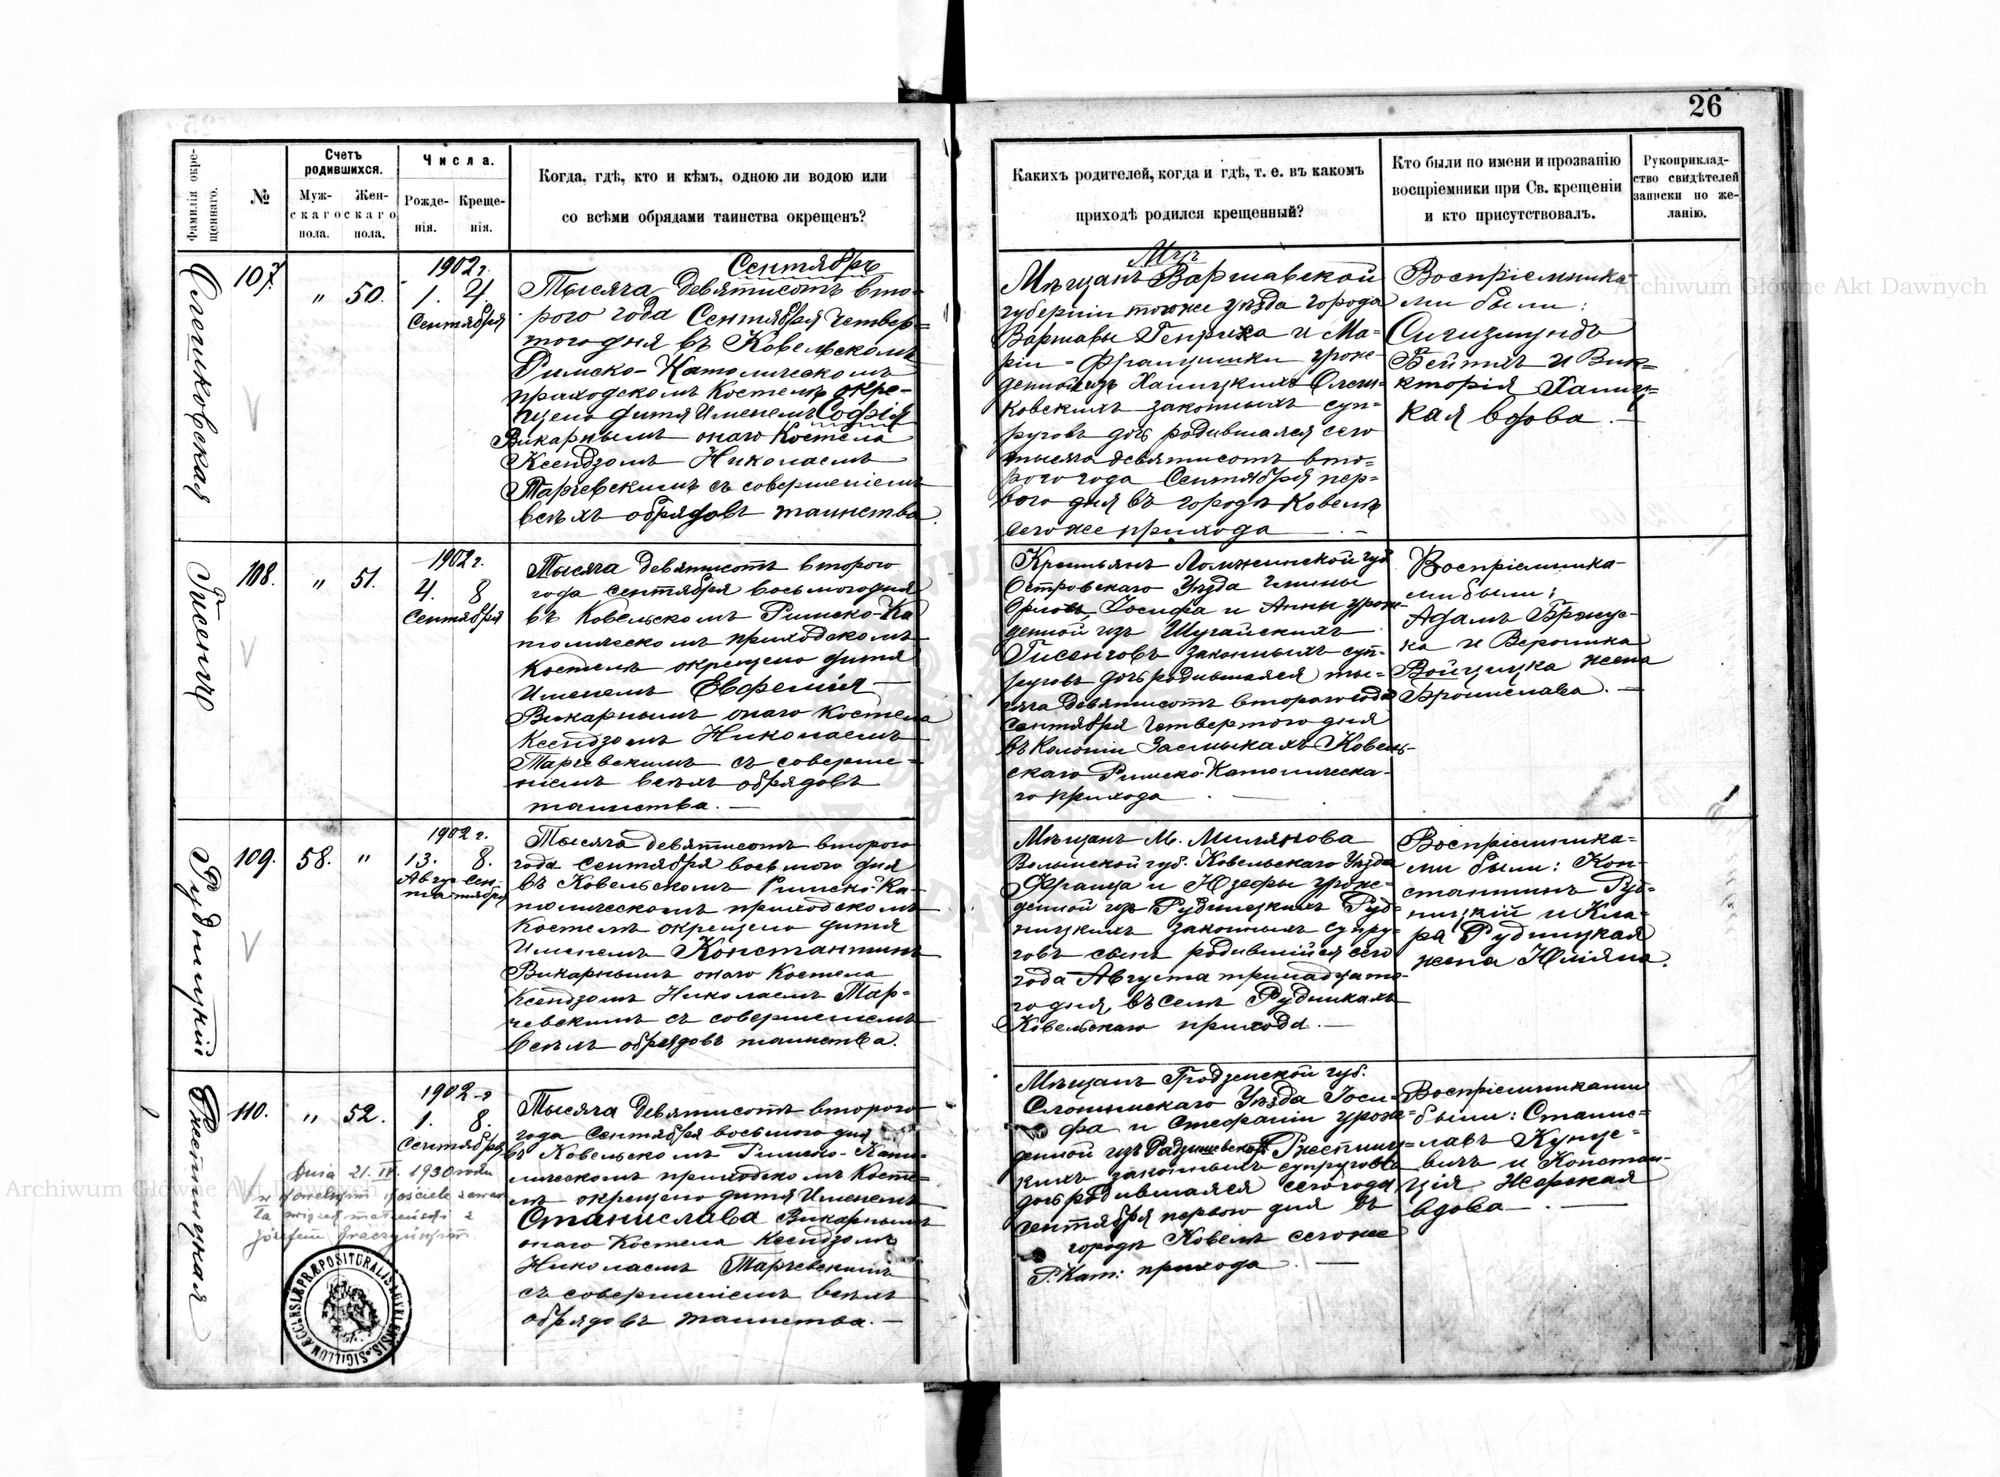 26
Фамилія окре-
щеннаго.
№
Счетъ
родившихся.
Муж-
скаго
пола.
Жен-
скаго
пола.
Числа.
Рожде-
нія.
Креще-
нія.
Когда, гдѣ, кто и кѣмъ, одною ли водою или
со всѣми обрядами таинства окрещенъ?
Какихъ родителей, когда и гдѣ, т. е. въ какомъ
приходѣ родился крещенный?
Кто были по имени и прозванію
воспріемники при Св. крещеніи
и кто присутствовалъ.
Рукоприклад-
ство свидѣтелей
записки по же-
ланію.
Олешковская
107.
" 50.
1902 г.
1. 4.
Сентября
Сентябрь
Тысяча девятисотъ вто-
рого года Сентября четвер-
того дня въ Ковельскомъ
Римско-Католическомъ
приходскомъ Костелѣ окре-
щено дитя Именемъ Софія
Викарнымъ онаго Костела
Ксендзомъ Николаемъ
Тарчевскимъ съ совершеніемъ
всѣхъ обрядовъ таинства.
Мѣщанъ Варшавской
губерніи тогоже уѣзда города
Варшавы Генриха и Ма-
ріи-Францишки урож-
денной изъ Олеш-
ковскихъ законныхъ суп-
руговъ дочь родившаяся сего
тысяча девятисотъ вто-
рого года Сентября пер-
вого дня въ городѣ Ковелѣ
сегоже прихода
Воспріемника-
ми были:
Сигизмундъ
и Вик-
кторія
кая вдова.
Гисенгъ
108.
" 51.
1902 г.
4. 8
Сентября
Тысяча девятисотъ второго
года Сентября восьмого дня
въ Ковельскомъ Римско-Ка
толическомъ приходскомъ
Костелѣ окрещено дитя
Именемъ Евфемія
Викарнымъ онаго Костела
Ксендзомъ Николаемъ
Тарчевскимъ съ соверше-
ніемъ всѣхъ обрядовъ
таинства.
Крестьянъ Ломжинской губ.
Островскаго Уѣзда Гмины
Орловъ Іосифа и Анны урож-
денной изъ Шугайскихъ
Гисенговъ законныхъ суп-
руговъ дочь родившаяся ты-
сяча девятисотъ второго года
Сентября Четвертого дня
въ Колоніи Засмыкахъ Ковель-
скаго Римско-Католическа-
го прихода
Воспріемника-
ми были:
Адамъ
и Вероника
Войцицка жена
Бронислава.
Рудницкій
109.
58. "
1902 г.
13. 8.
Авгу- Сен-
ста тября
Тысяча девятисотъ второго
года Сентября восьмого дня
въ Ковельскомъ Римско-Ка-
толическомъ приходскомъ
Костелѣ окрещено дитя
Именемъ Константинъ
Викарнымъ онаго Костела
Ксендзомъ Николаемъ Тар-
чевскимъ съ совершеніемъ
всѣхъ обрядовъ таинства.
Мѣщанъ М. Миляновa
Волынской губ. Ковельскаго Уѣзда
Франца и Юзефы урож-
денной изъ Рудницкихъ Руд-
ницкихъ законныхъ супру-
говъ сынъ родившійся сего
года Августа тринадцато-
го дня въ селѣ Рудникахъ
Ковельскаго прихода.
Воспріемника-
ми были: Кон-
стантинъ Руд-
ницкій и Кла-
ра Рудницкая
жена Юліяна.
Ржепницкая
110.
" 52.
1902 г
1. 8.
Сентября
Dnia 21. IV. 1930 roku
w Kowelskim kościele zawar
ła związek małżeński z
Józefem
SIGILLUM ECCLESIÆ PRÆPOSITORALIS KOVELENSIS
Тысяча девятисотъ второго
года Сентября восьмого дня
въ Ковельскомъ Римско-Като-
лическомъ приходскомъ Косте-
лѣ окрещено дитя Именемъ
Станислава Викарнымъ
онаго Костела Ксендзомъ
Николаемъ Тарчевскимъ
съ совершеніемъ всѣхъ
обрядовъ таинства.
Мѣщанъ Гродненской губ.
Слонимскаго Уѣзда Іоси-
фа и Стефаніи урож-
денной изъ Ржепниц-
кихъ законныхъ супруговъ
дочь родившаяся сего года
Сентября первого дня въ
городѣ Ковелѣ сегоже
Р. Кат: прихода.
Воспріемниками
были: Станис-
лавъ Кунце-
вичъ и Констан-
ція
вдова
Archiwum Główne Akt Dawnych
Archiwum Główne Akt Dawnych